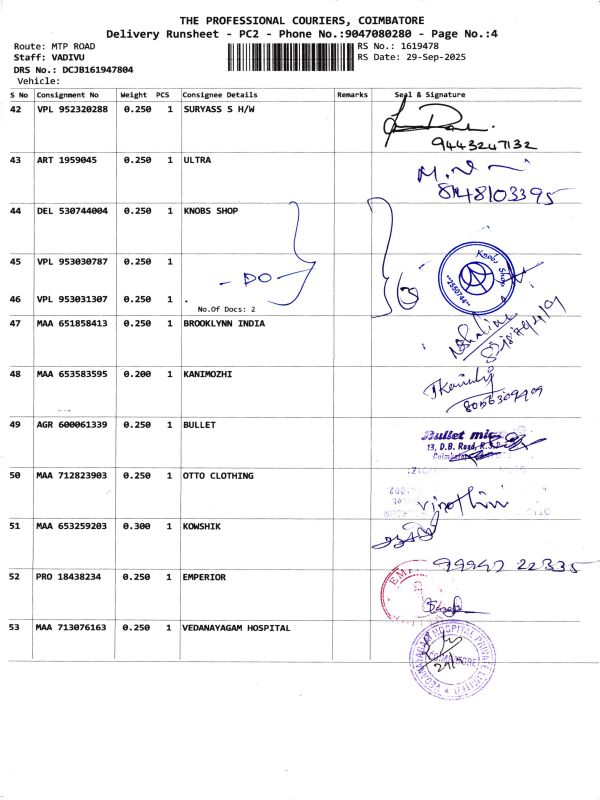 THE PROFESSIONAL COURIERS, COIMBATORE
Delivery Runsheet - PC2 - Phone No.:9047080280 - Page No.:4
Route: MTP ROAD
RS No.: 1619478
Staff: VADIVU
RS Date: 29-Sep-2025
DRS No.: DCJB161947804
Vehicle:
S No Consignment No Weight PCS Consignee Details Remarks Seal & Signature
42 VPL 952320288 0.250 1 SURYASS S H/W
9443247132
43 ART 1959045 0.250 1 ULTRA
8148103395
44 DEL 530744004 0.250 1 KNOBS SHOP
45 VPL 953030787 0.250 1
- DO -
46 VPL 953031307 0.250 1 .
No.Of Docs: 2
3
Knobs Shop
2550744
47 MAA 651858413 0.250 1 BROOKLYNN INDIA
48 MAA 653583595 0.200 1 KANIMOZHI
8056309909
49 AGR 600061339 0.250 1 BULLET
Bullet
13, D.B. Road, R.S.
50 MAA 712823903 0.250 1 OTTO CLOTHING
51 MAA 653259203 0.300 1 KOWSHIK
99947 22335
52 PRO 18438234 0.250 1 EMPERIOR
53 MAA 713076163 0.250 1 VEDANAYAGAM HOSPITAL
VEDANAYAGAM HOSPITAL PRIVATE LIMITED
COIMBATORE
29/9